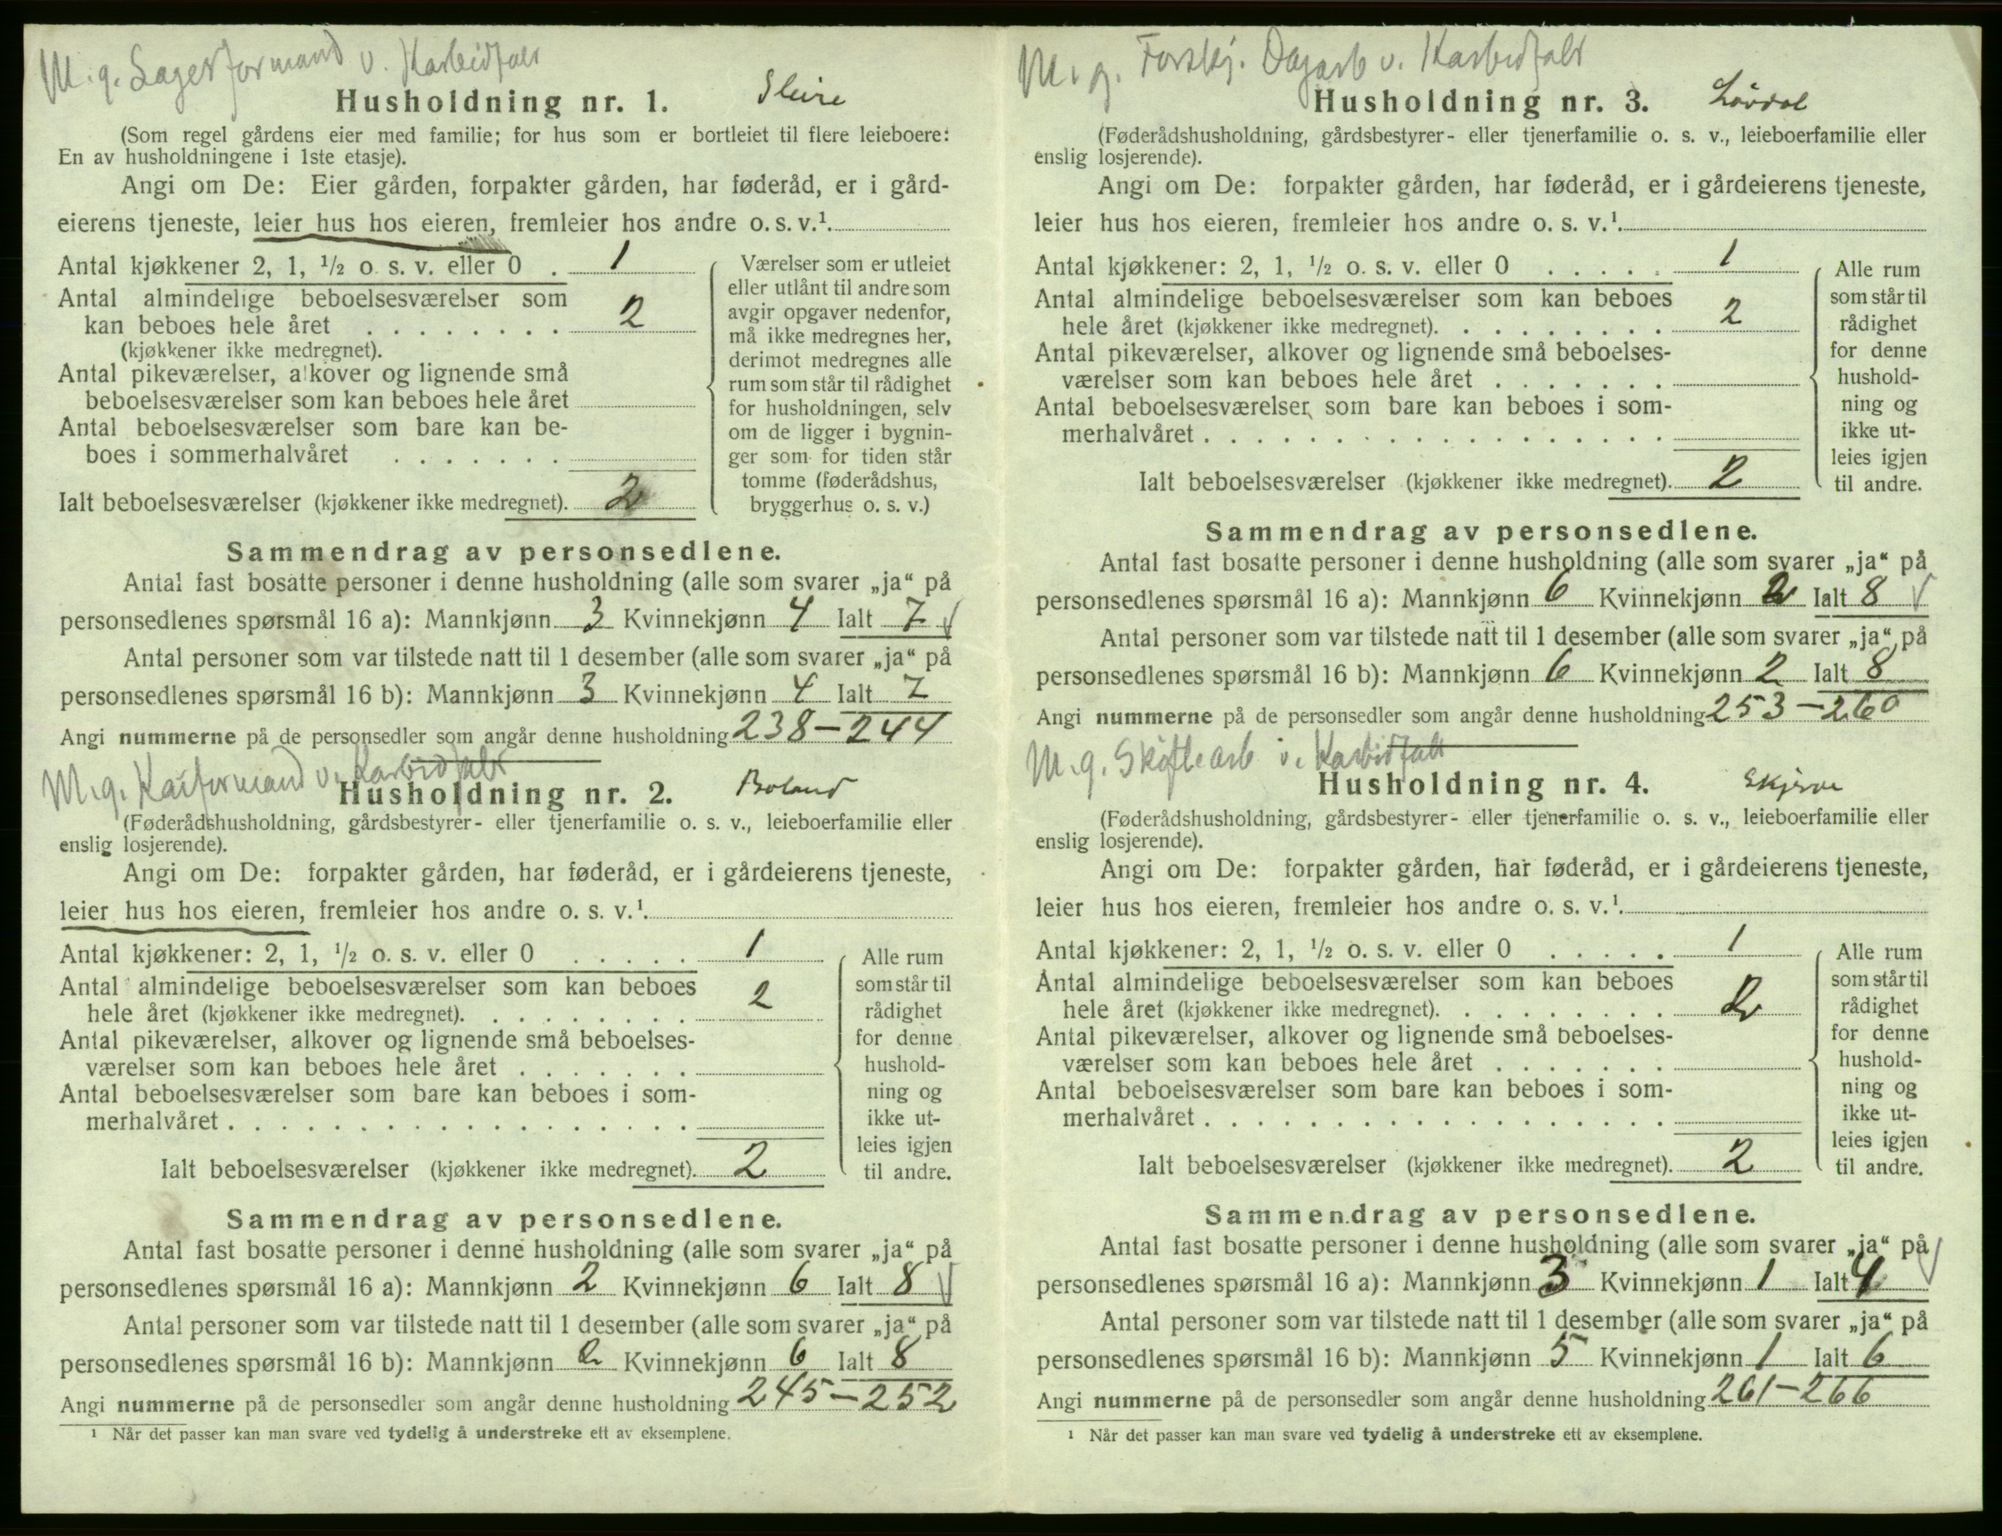 M. g. Lagerformand v. Karbidfabr
Husholdning nr. 1. Sleire
(Som regel gårdens eier med familie; for hus som er bortleiet til flere leieboere:
En av husholdningene i 1ste etasje).
Angi om De: Eier gården, forpakter gården, har føderåd, er i gård-
eierens tjeneste, leier hus hos eieren, fremleier hos andre o. s. v.¹.
Antal kjøkkener 2, 1, ½ o. s. v. eller 0 . 1
Antal almindelige beboelsesværelser som
kan beboes hele året . . . . . . . . 2
(kjøkkener ikke medregnet).
Antal pikeværelser, alkover og lignende små
beboelsesværelser som kan beboes hele året
Antal beboelsesværelser som bare kan be-
boes i sommerhalvåret . . . . . . .
Ialt beboelsesværelser (kjøkkener ikke medregnet). 2
Værelser som er utleiet
eller utlånt til andre som
avgir opgaver nedenfor,
må ikke medregnes her,
derimot medregnes alle
rum som står til rådighet
for husholdningen, selv
om de ligger i bygnin-
ger som for tiden står
tomme (føderådshus,
bryggerhus o. s. v.)
Sammendrag av personsedlene.
Antal fast bosatte personer i denne husholdning (alle som svarer „ja“ på
personsedlenes spørsmål 16 a): Mannkjønn 3 Kvinnekjønn 4 Ialt 7
Antal personer som var tilstede natt til 1 desember (alle som svarer „ja“ på
personsedlenes spørsmål 16 b): Mannkjønn 3 Kvinnekjønn 4 Ialt 7
Angi nummerne på de personsedler som angår denne husholdning 238 – 244
M. g. Kaiformand v. Karbidfabr
Husholdning nr. 2. Boland
(Føderådshusholdning, gårdsbestyrer- eller tjenerfamilie o. s. v., leieboerfamilie eller
enslig losjerende).
Angi om De: forpakter gården, har føderåd, er i gårdeierens tjeneste,
leier hus hos eieren, fremleier hos andre o. s. v.¹.
Antal kjøkkener: 2, 1, ½ o. s. v. eller 0 . . . . . 1
Antal almindelige beboelsesværelser som kan beboes
hele året (kjøkkener ikke medregnet). . . . . . . . . 2
Antal pikeværelser, alkover og lignende små beboelses-
værelser som kan beboes hele året . . . . . . .
Antal beboelsesværelser som bare kan beboes i som-
merhalvåret . . . . . . . . . . . . . . . . . .
Ialt beboelsesværelser (kjøkkener ikke medregnet). 2
Alle rum
som står til
rådighet
for denne
hushold-
ning og
ikke ut-
leies igjen
til andre.
Sammendrag av personsedlene.
Antal fast bosatte personer i denne husholdning (alle som svarer „ja“ på
personsedlenes spørsmål 16 a): Mannkjønn 2 Kvinnekjønn 6 Ialt 8
Antal personer som var tilstede natt til 1 desember (alle som svarer „ja“ på
personsedlenes spørsmål 16 b): Mannkjønn 2 Kvinnekjønn 6 Ialt 8
Angi nummerne på de personsedler som angår denne husholdning 245 – 252
¹ Når det passer kan man svare ved tydelig å understreke ett av eksemplene.
M. g. Forskj. Dagarb v. Karbidfabr
Husholdning nr. 3. Lövdal
(Føderådshusholdning, gårdsbestyrer- eller tjenerfamilie o. s. v., leieboerfamilie eller
enslig losjerende).
Angi om De: forpakter gården, har føderåd, er i gårdeierens tjeneste,
leier hus hos eieren, fremleier hos andre o. s. v.¹.
Antal kjøkkener: 2, 1, ½ o. s. v. eller 0 . . . . . 1
Antal almindelige beboelsesværelser som kan beboes
hele året (kjøkkener ikke medregnet). . . . . . . . . 2
Antal pikeværelser, alkover og lignende små beboelses-
værelser som kan beboes hele året . . . . . . .
Antal beboelsesværelser som bare kan beboes i som-
merhalvåret . . . . . . . . . . . . . . . . . .
Ialt beboelsesværelser (kjøkkener ikke medregnet). 2
Alle rum
som står til
rådighet
for denne
hushold-
ning og
ikke ut-
leies igjen
til andre.
Sammendrag av personsedlene.
Antal fast bosatte personer i denne husholdning (alle som svarer „ja“ på
personsedlenes spørsmål 16 a): Mannkjønn 6 Kvinnekjønn 2 Ialt 8
Antal personer som var tilstede natt til 1 desember (alle som svarer „ja“ på
personsedlenes spørsmål 16 b): Mannkjønn 6 Kvinnekjønn 2 Ialt 8
Angi nummerne på de personsedler som angår denne husholdning 253 – 260
M. g. Skiftearb v. Karbidfabr
Husholdning nr. 4. Skjerve
(Føderådshusholdning, gårdsbestyrer- eller tjenerfamilie o. s. v., leieboerfamilie eller
enslig losjerende).
Angi om De: forpakter gården, har føderåd, er i gårdeierens tjeneste,
leier hus hos eieren, fremleier hos andre o. s. v.¹.
Antal kjøkkener: 2, 1, ½ o. s. v. eller 0 . . . . . 1
Antal almindelige beboelsesværelser som kan beboes
hele året (kjøkkener ikke medregnet). . . . . . . . . 2
Antal pikeværelser, alkover og lignende små beboelses-
værelser som kan beboes hele året . . . . . . .
Antal beboelsesværelser som bare kan beboes i som-
merhalvåret . . . . . . . . . . . . . . . . . .
Ialt beboelsesværelser (kjøkkener ikke medregnet). 2
Alle rum
som står til
rådighet
for denne
hushold-
ning og
ikke ut-
leies igjen
til andre.
Sammendrag av personsedlene.
Antal fast bosatte personer i denne husholdning (alle som svarer „ja“ på
personsedlenes spørsmål 16 a): Mannkjønn 3 Kvinnekjønn 1 Ialt 4
Antal personer som var tilstede natt til 1 desember (alle som svarer „ja“ på
personsedlenes spørsmål 16 b): Mannkjønn 5 Kvinnekjønn 1 Ialt 6
Angi nummerne på de personsedler som angår denne husholdning 261 – 266
¹ Når det passer kan man svare ved tydelig å understreke ett av eksemplene.